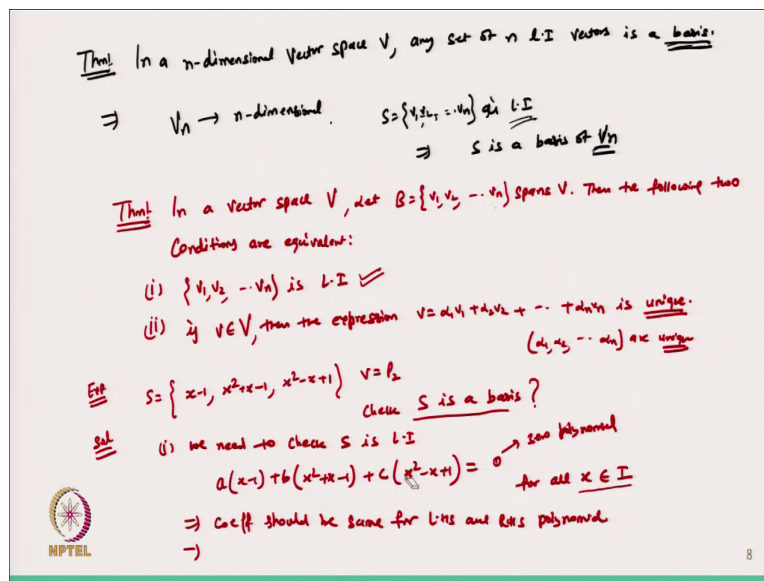 Thm! In a n-dimensional vector space V, any set of n L.I vectors is a basis.
⇒ Vn → n-dimensional. S={v1, v2, -- vn} is L.I
⇒ S is a basis of Vn
Thm! In a vector space V, let B={v1, v2, -- vn} spans V. Then the following two
Conditions are equivalent:
(i) {v1, v2 -- vn} is L.I ✓
(ii) if v∈V, then the expression v=α1v1+α2v2+ -- +αnvn is unique.
(α1, α2, -- αn) are unique
Exp S={x-1, x²+x-1, x²-x+1} V=P2
Check S is a basis?
Sol (i) We need to check S is L.I
a(x-1)+b(x²+x-1)+c(x²-x+1)=0 → zero polynomial
for all x ∈ I
⇒ Coeff should be same for LHS and RHS polynomial
⇒
NPTEL
8